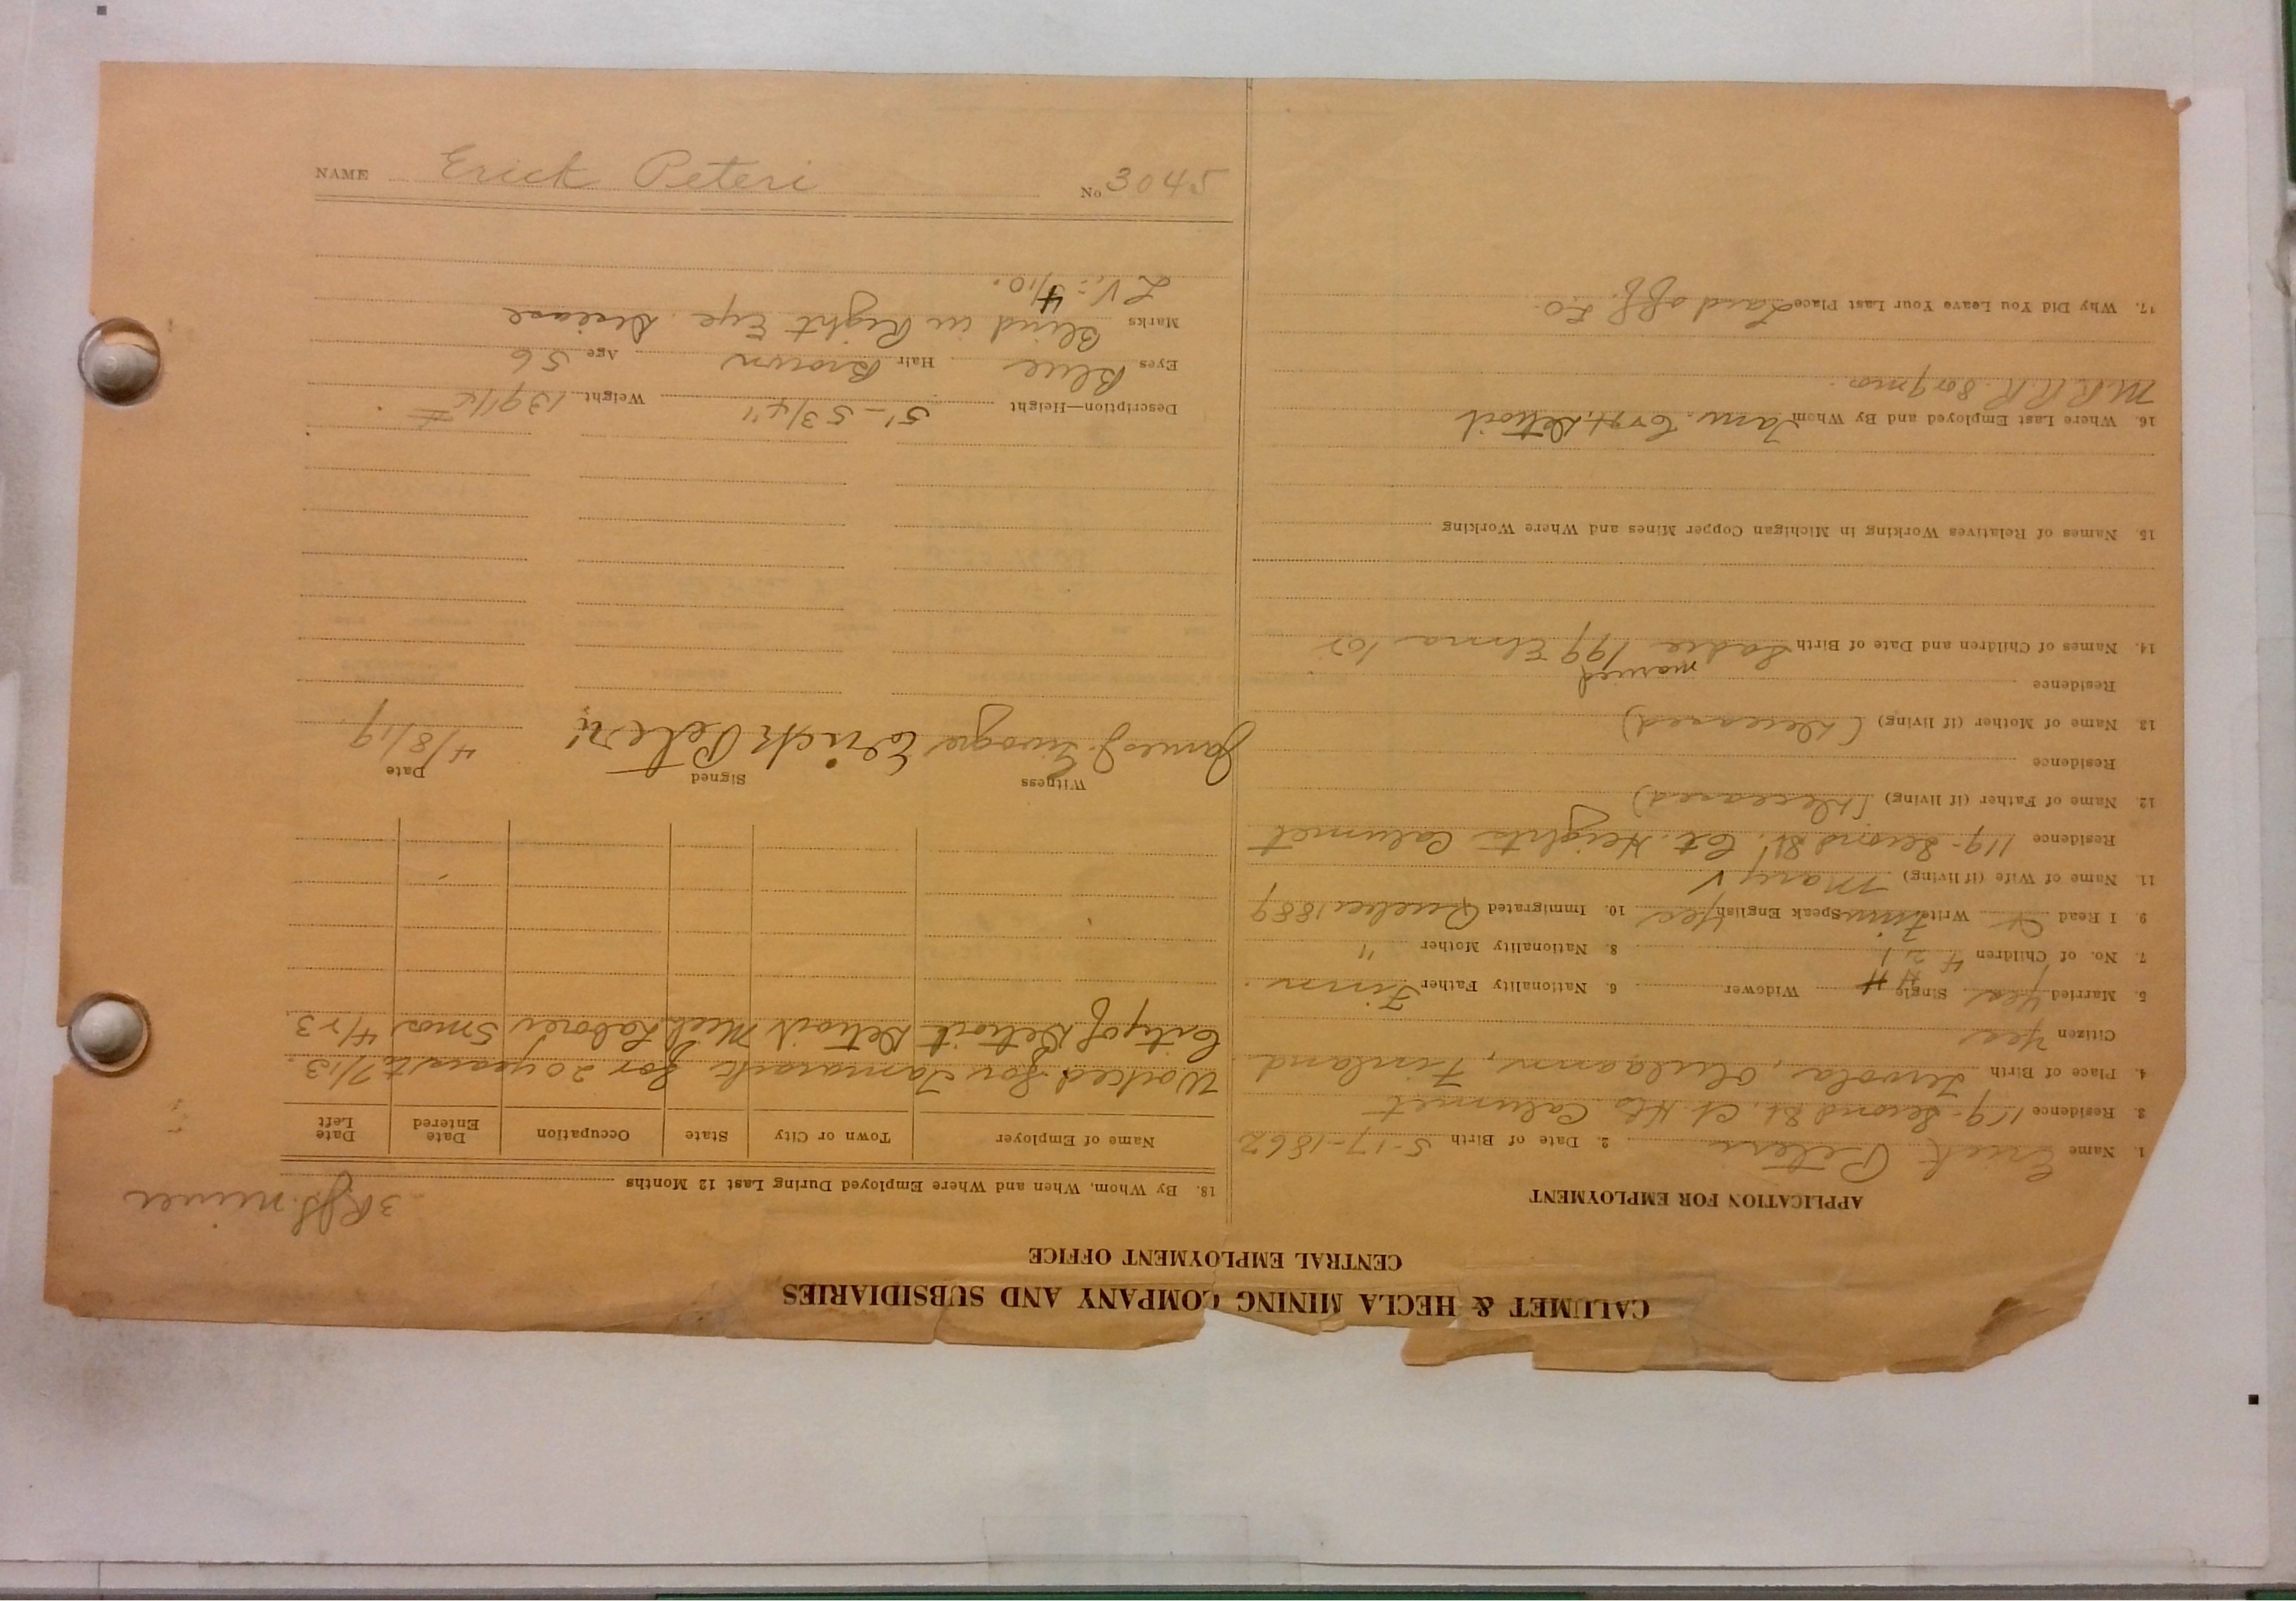 CALUMET & HECLA MINING COMPANY AND SUBSIDIARIES
CENTRAL EMPLOYMENT OFFICE
APPLICATION FOR EMPLOYMENT
1. Name Erick Peteri 2. Date of Birth 5-17-1862
3. Residence 119-Second St. Ct. Hts. Calumet
4. Place of Birth Finland
Citizen Yes
5. Married Yes Single Widower 6. Nationality Father Finn.
7. No. of Children 8. Nationality Mother "
9. I Read Write Finn Speak English Yes 10. Immigrated 1889
11. Name of Wife (if living) Mary V
Residence 119-Second St. Ct. Heights Calumet
12. Name of Father (if living) (Deceased)
Residence
13. Name of Mother (if living) (Deceased)
Residence
married
14. Names of Children and Date of Birth Sadie 199 Elma
15. Names of Relatives Working in Michigan Copper Mines and Where Working
16. Where Last Employed and By Whom Detroit
M.R.R.R. 8 or 9 mos.
17. Why Did You Leave Your Last Place Laid off.
3 miner
18. By Whom, When and Where Employed During Last 12 Months
Name of Employer Town or City State Occupation Date Entered Date Left
Worked for Tamarack for 20 years to 7/13.
City of Detroit Detroit Mich Laborer 5 mos
Witness Signed Date
James J. Erick Peteri 4/8/19
Description—Height 5'-5 3/4" Weight 139
Eyes Blue Hair Brown Age 56
Marks Blind in Right Eye. Disease
L V.= 4/10.
NAME Erick Peteri No 3045